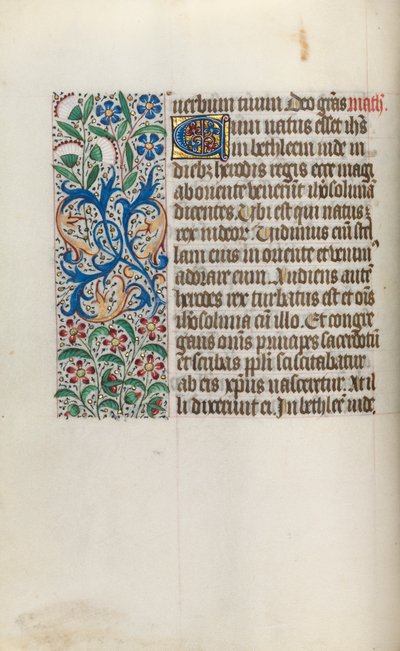 uerbum tuum Deo gr̃as math̃.
Cum natus esset ihs̃
in bethleem iude in
dieb; herodis regis ecce magi
ab oriente venerũt iherosolima
dicentes. Ubi est qui natus ẽ
rex iudeor. Uidimus eim̃ stel
lam eius in oriente et venim
adorare eum. Audiens autẽ
herodes rex turbatus est et oĩs
iherosolima cũ illo. Et congre
gans om̃s principes sacerdotũ
et scribas ppl̃i sciscitabatur
ab eis xp̃us nasceretur. At il
li dixerunt ei. In bethleẽ iude.